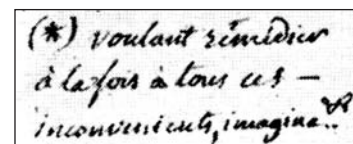 (*) voulant rémédier
à la fois à tous ces —
inconvenients, imagina..